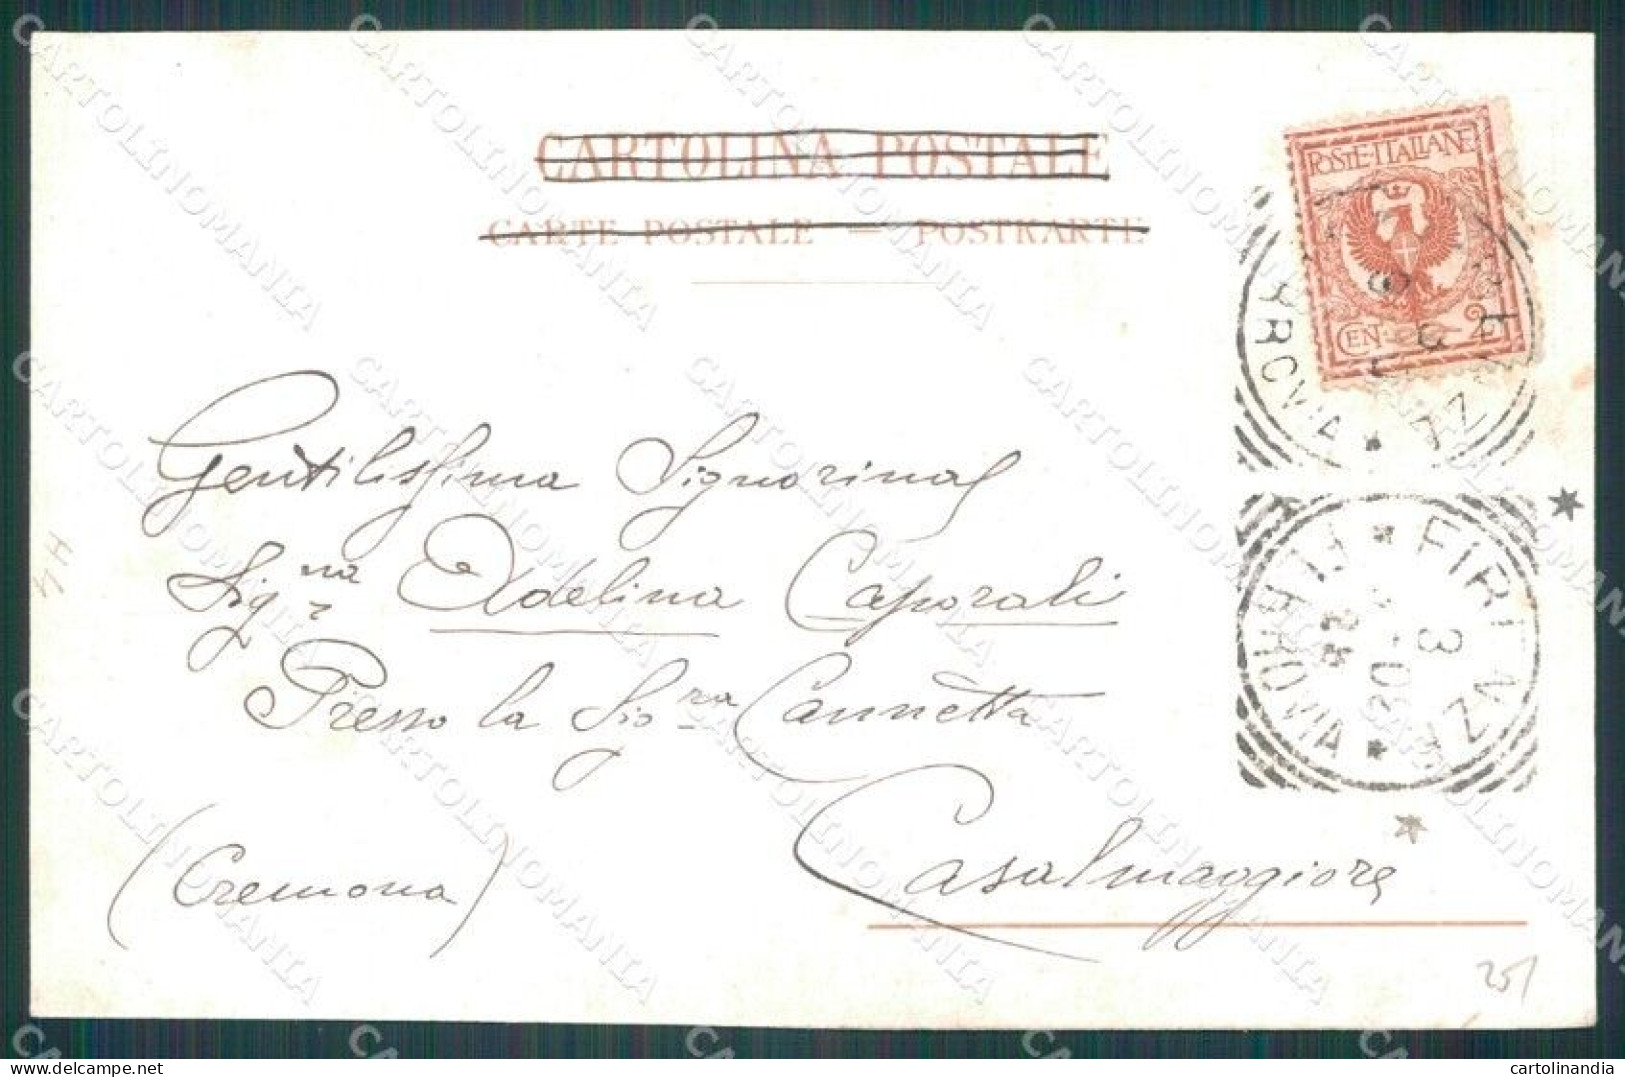 CARTOLINA POSTALE
CARTE POSTALE — POSTKARTE
POSTE·ITALIANE
CEN. 2
FERROVIA
FIRENZE
FERROVIA
3
Gentilissima Signorina
Sig.na Adelina Caporali
Presso la Sig.ra Cannetta
Casalmaggiore
(Cremona)
25/
CARTOLINOMANIA
cartolinandia